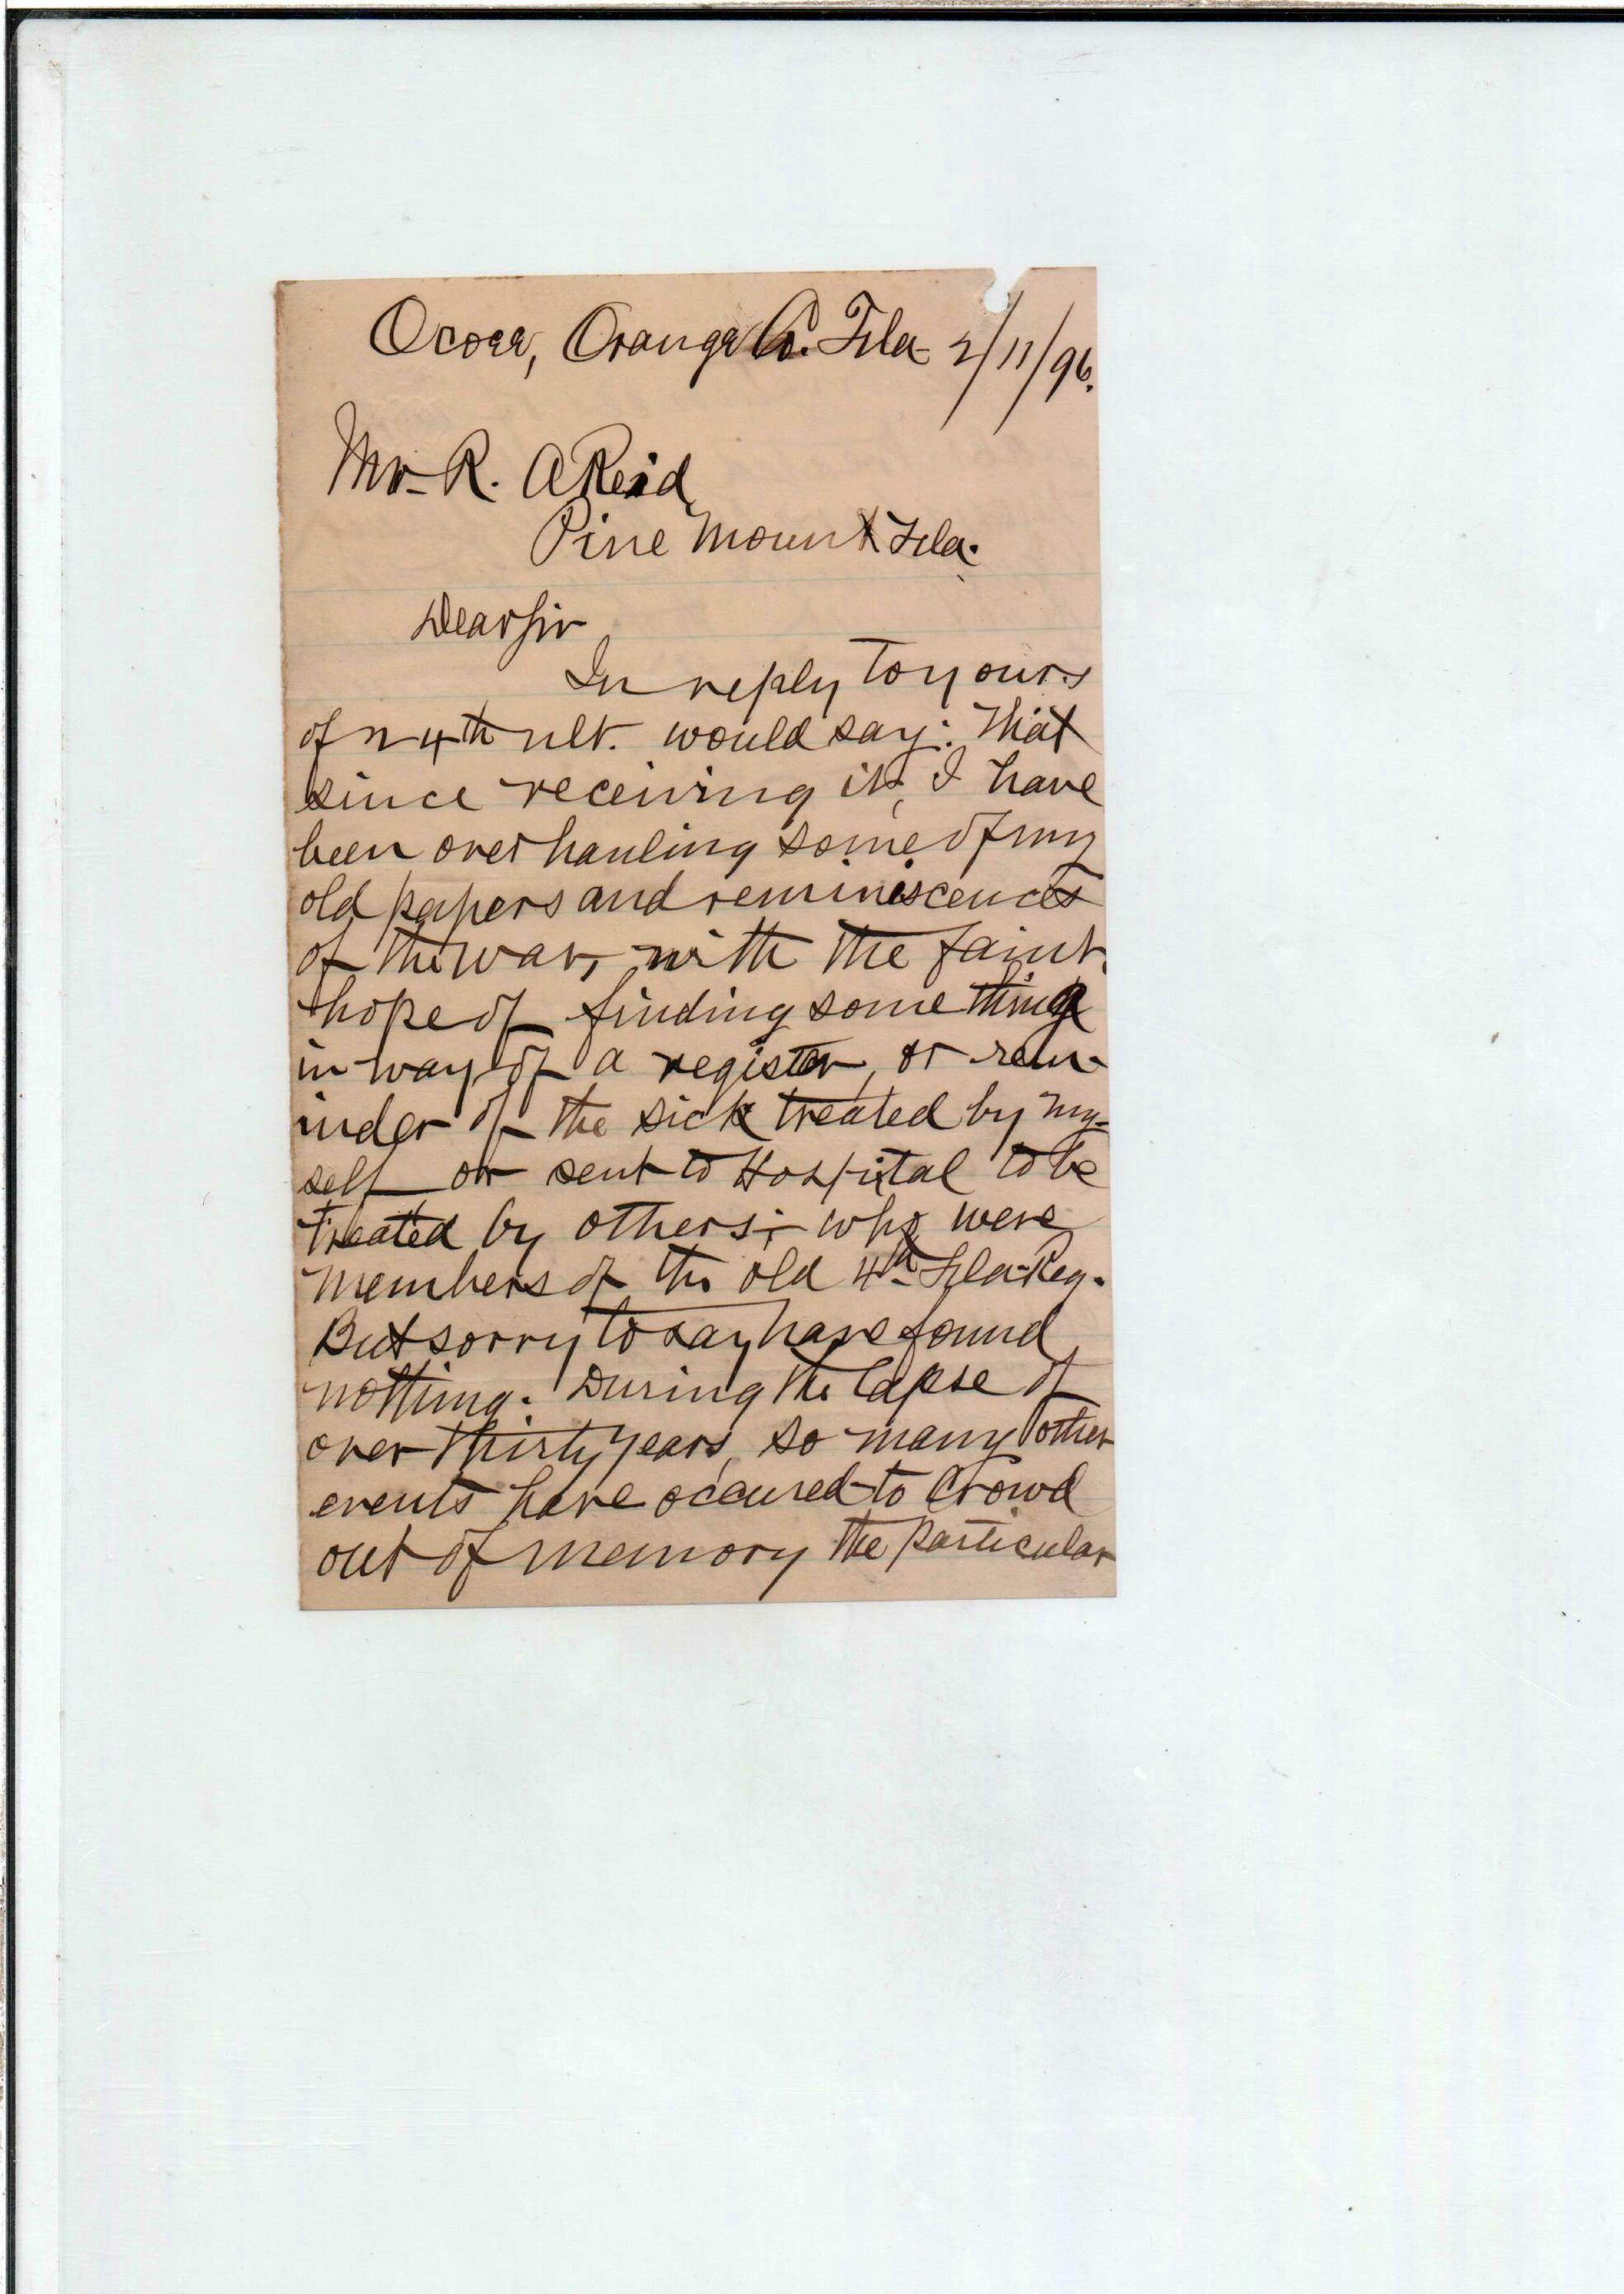 Ocoee, Orange Co. Fla 2/11/96.
Mr. R. A Reid
Pine Mount Fla.
Dear Sir
In reply to yours
of 24th ult. would say: That
since receiving it, I have
been overhauling some of my
old papers and reminiscences
of the war, with the faint
hope of finding some thing
in way of a register, or rem-
inder of the sick treated by my-
self or sent to Hospital to be
treated by others; who were
members of the old 4th Fla. Reg.
But sorry to say have found
nothing. During the lapse of
over thirty years, so many other
events have occured to crowd
out of memory the particular